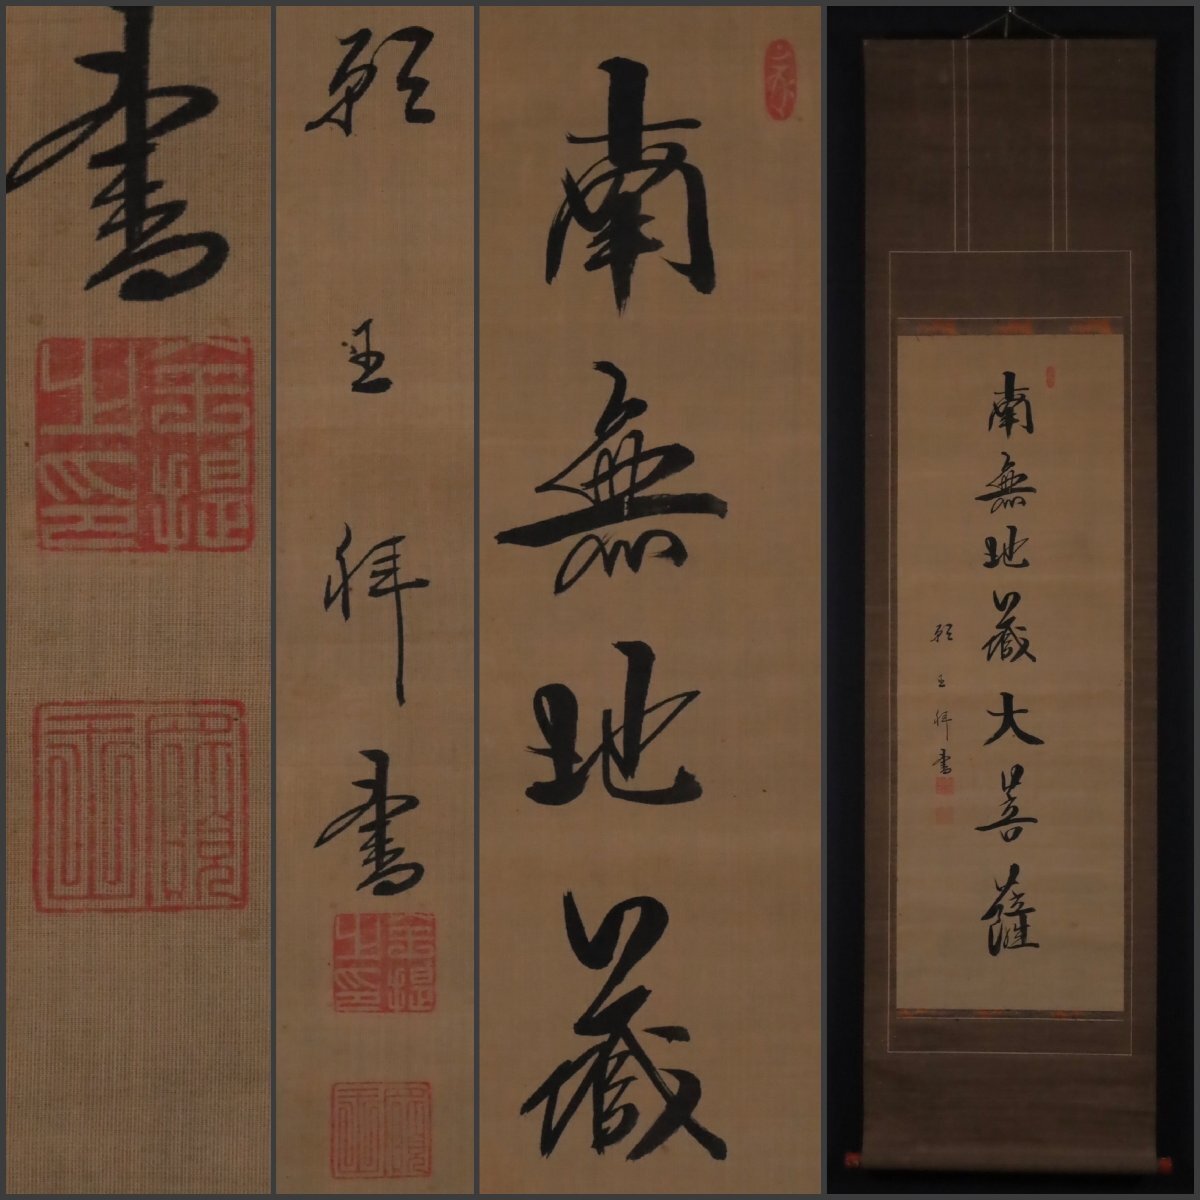 南無地藏大菩薩
願王拜書
南無地藏
願王拜書
書